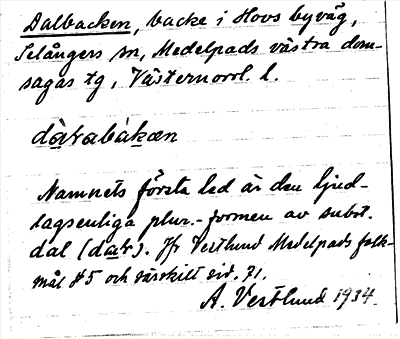 Dalbacken, backe i Hovs byväg,
Selångers sn, Medelpads västra dom-
sagas tg, Västernorrl. l.
da̱rabàkæn
Namnets första led är den ljud-
lagsenliga plur.-formen av subst.
dal (da̱r). Jfr Vestlund Medelpads folk-
mål § 5 och särskilt sid. 71.
A. Vestlund 1934.